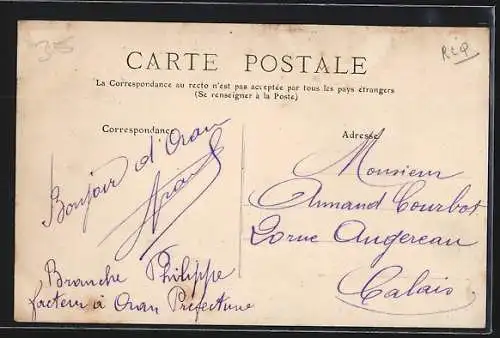 35
RLP
CARTE POSTALE
La Correspondance au recto n'est pas acceptée par tous les pays étrangers
(Se renseigner à la Poste)
Correspondance
Bonjour d'Oran
Branche Philippe
facteur à Oran Préfecture
Adresse
Monsieur
Armand Courbot
Augereau
Calais